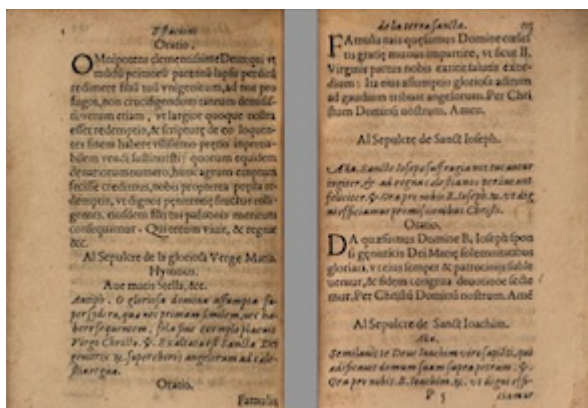 Estacions
Oratio.
OMnipotens clementissime Deus qui, vt
mūdū primorū parentū lapsu perditū
redimere filiū tuū vnigenitum, ad nos pro
fugos, non crucifigendum tantum demisi
sti, verum etiam, vt largior quoque nostra
esset redemptio, & scripturæ de eo loquen-
tes finem habere vilissimo pretio
bilem vendi sustinuisti; quorum equidem
denariorum numero, hunc agrum emptum
fecisse credimus, nobis propterea populo re
demptis, vt dignos pœnitentiæ fructus colli
gentes, eiusdem filij tui passionis meritum
consequamur. Qui tecum viuit, & regnat
&c.
Al Sepulcre de la gloriosa Verge Maria.
Hymnus.
Aue maris stella, &c.
Antiph. O gloriosa domina assumpta su-
per sydera, quæ nec primam similem, nec ha
bere sequentem, sola sine exemplo placuit
Virgo Christo. ℣. Exaltata est Sancta Dei
genitrix ℟. super choros angelorum ad cæle-
stia regna.
Oratio.
Famulis
de la terra sancta.
FAmulis tuis quæsumus Domine cælest
tis gratiæ munus impartire, vt sicut B.
Virginis partus nobis extitit salutis exor-
dium: Ita eius assumptio gloriosa aditum
ad gaudium tribuat angelorum. Per Chri
stum Dominū nostrum. Amen.
Al Sepulcre de Sanct Ioseph.
Aña. Sancte Ioseph suffragia nos tueantur
iugiter, & ad regna cælestia nos perducant
feliciter. ℣. Ora pro nobis B. Ioseph. ℟. vt dig
ni efficiamur promissionibus Christi.
Oratio.
DA quæsumus Domine B. Ioseph spon
si genitricis Dei Mariæ solemnitatibus
gloriari, vt eius semper & patrocinijs suble
uemur, & fidem congrua deuotione secte
mur. Per Christū Dominū nostrum. Amē
Al Sepulcre de Sanct Ioachim.
Aña.
Similauit te Deus Ioachim viro sapiēti, qui
ædificauit domum suam supra petram. ℣.
Ora pro nobis. B. Ioachim. ℟. vt digni effi-
P 5 ciamur